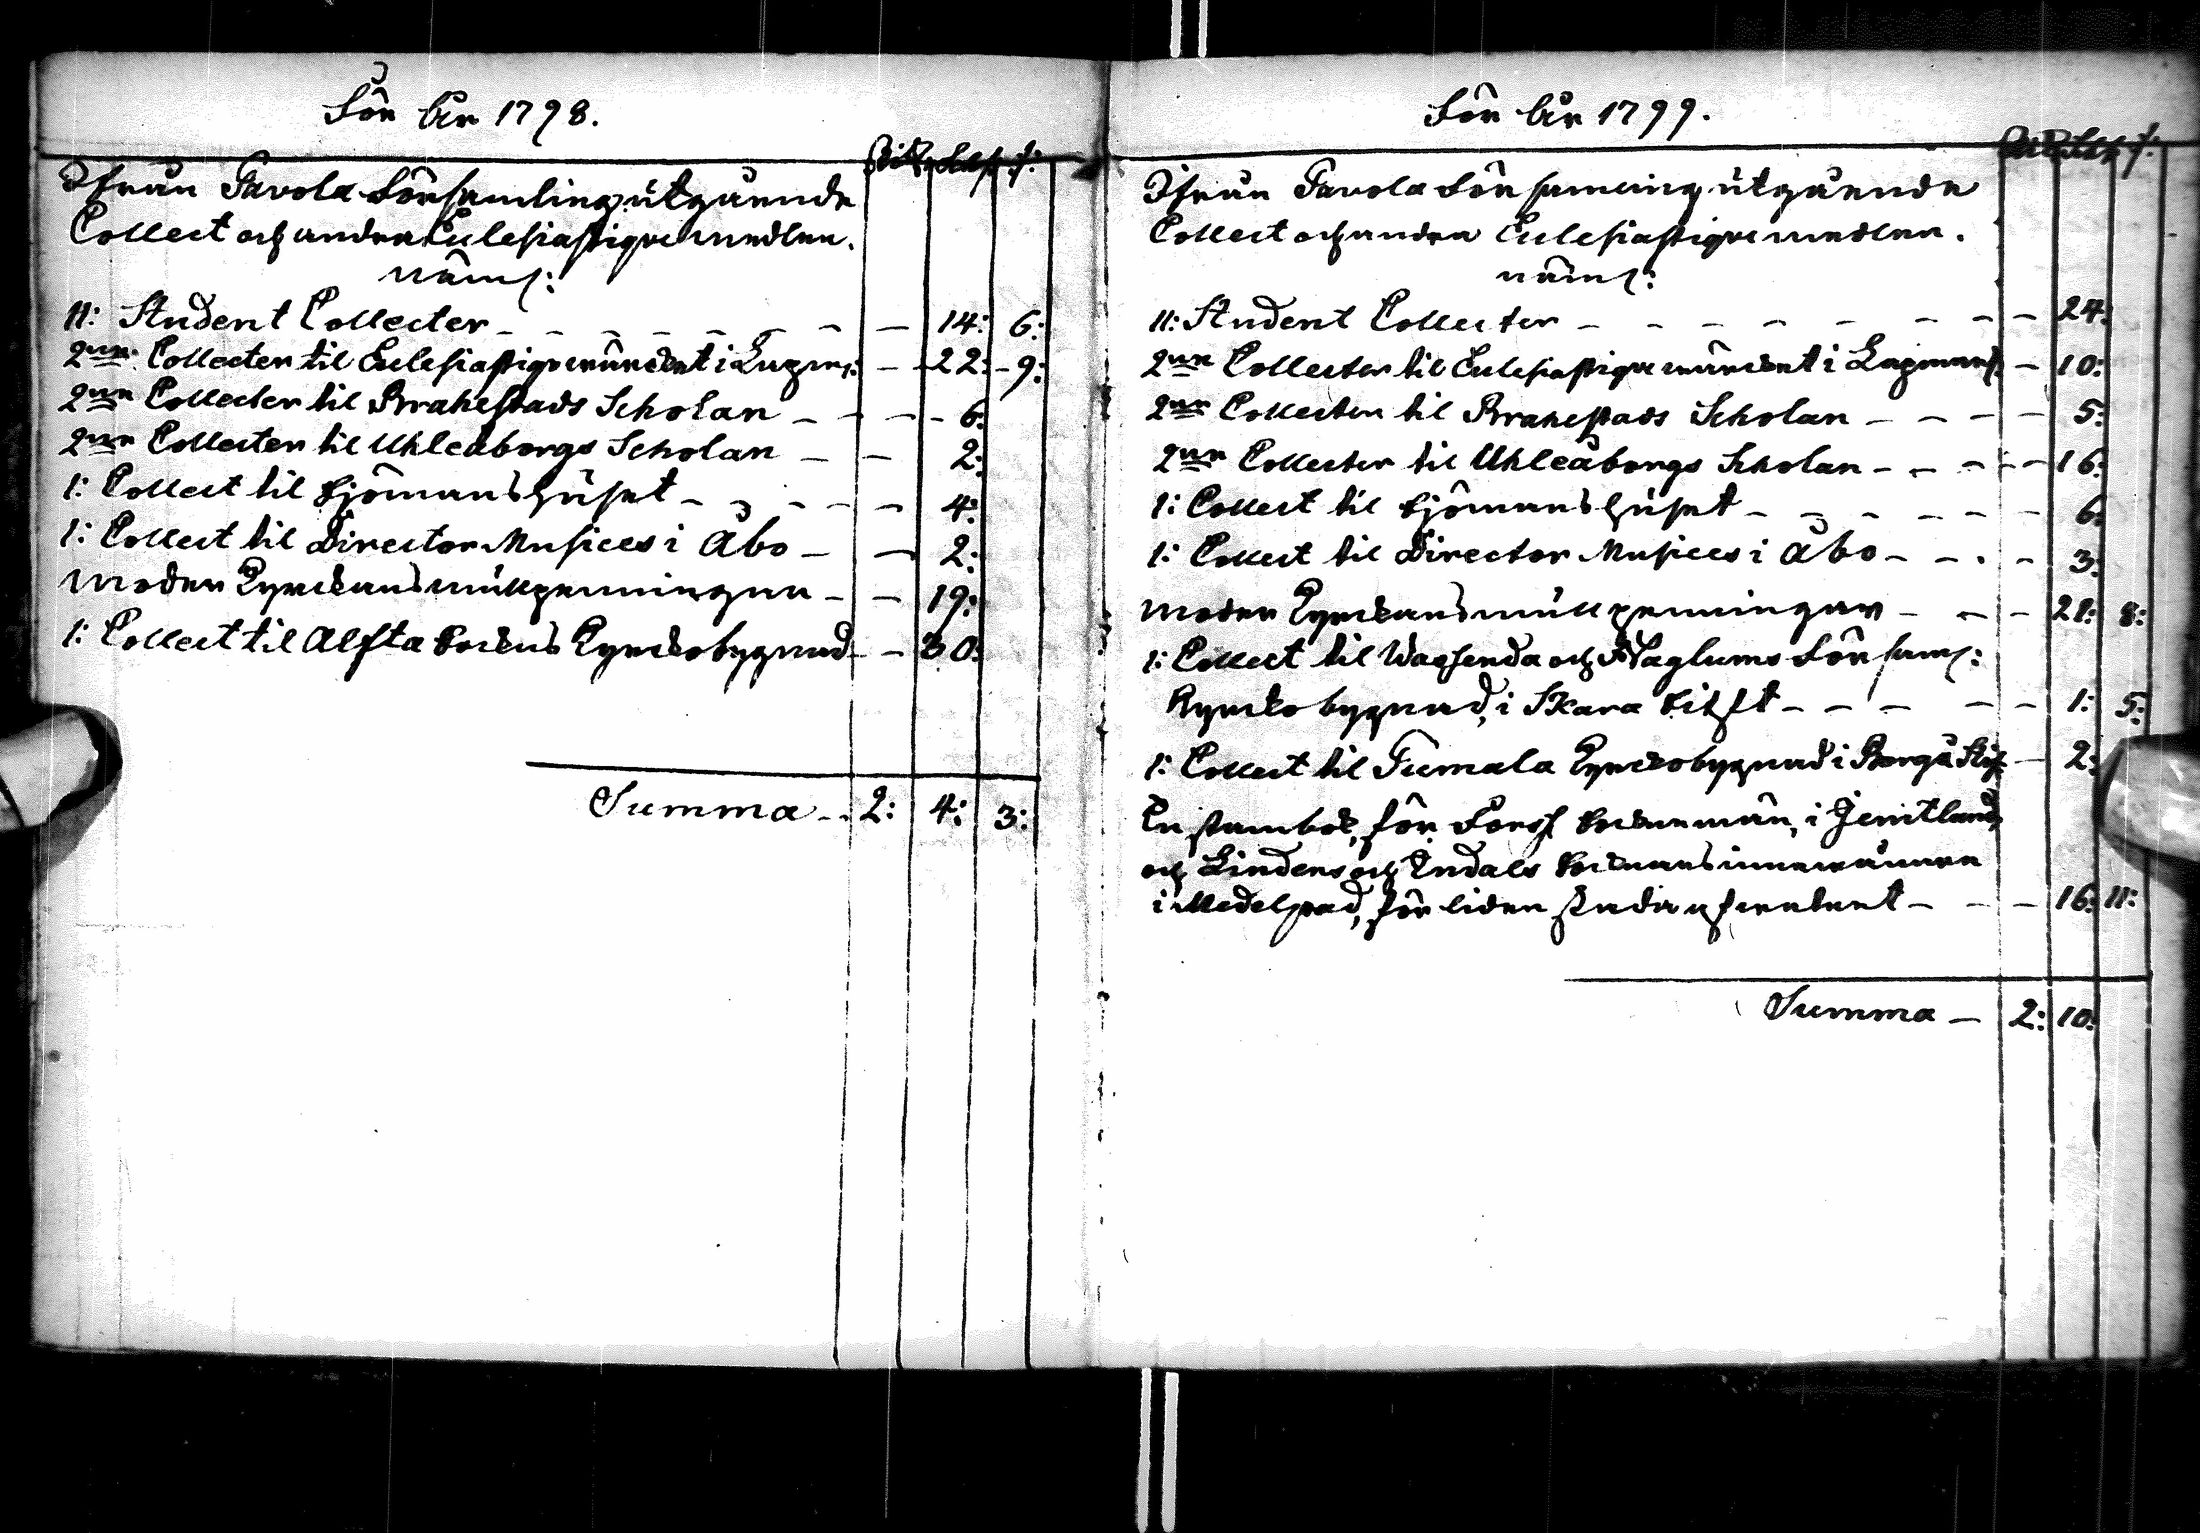 För År 1798.
Ifrån Pavola Församling utgående
Collect och andra Eclesiastique medlen.
näml:
11: Student Collecter 14: 6:
2ne Collecter til Eclesiastiqve wärcket i Lagm: 22: 9:
2ne Collecter til Brahestads Scholan 6:
2ne Collecter til Uhleåborgs Scholan 2:
1: Collect til Siömanshuset 4:
1: Collect til Director Musices i Åbo 2:
Moder Kyrckans mullpenningar 19:
1: Collect til Alfta Sockens Kyrckobygnad 30:
Summa 2: 4: 3:
För År 1799.
Ifrån Pavola Församling utgående
Collect och andra Eclesiastique medlen.
näml:
11: Student Collecter 24:
2ne Collecter til Eclesiastique wärcket i Lagmans 10:
2ne Collecter til Brahestads Scholan 5:
2ne Collecter til Uhleåborgs Scholan 16:
1: Collect til Siömanshuset 6:
1: Collect til Director Musices i Åbo 3:
Moder Kyrckans mullpenningar 21: 8:
1: Collect til och Församl:
Kyrckobygnad, i Skara Stift 1: 5:
1: Collect til Kyrckobygnad i Borgå Stift 2:
En stambok, för Fors Sockenmän, i Jemtland,
och Lidens och Indals Sockens innevånare
i Medelpad, för liden 16: 11:
Summa 2: 10: